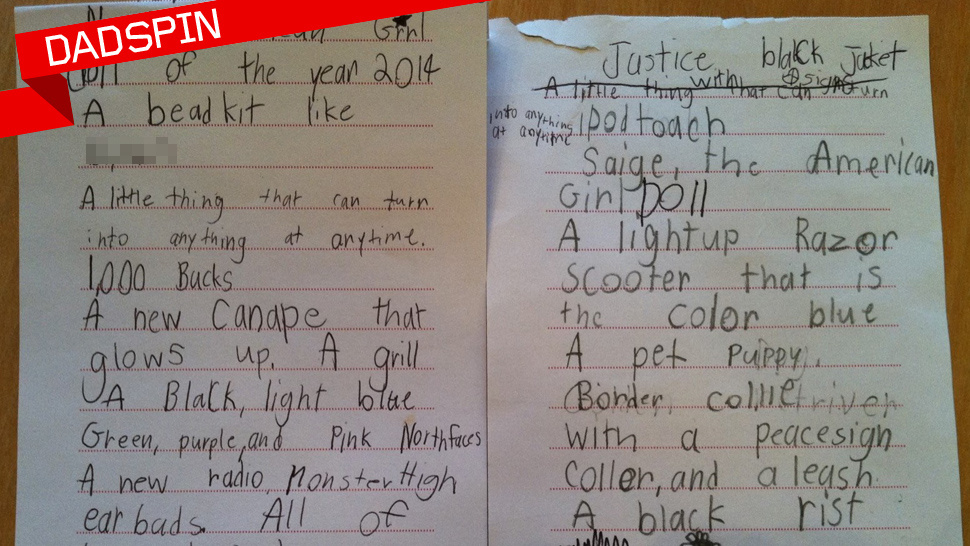 DADSPIN
Girl
Doll of the year 2014
A bead kit like
A little thing that can turn
into anything at anytime.
1,000 Bucks
A new Canape that
glows up. A grill
A Black, light blue
Green, purple, and Pink Northfaces
A new radio, Monster High
ear bads. All of
Justice black Jacket
with
A little thing that can turn
into anything
at anytime
ipod toach
Saige, the American
Girl Doll
A lightup Razor
Scooter that is
the color blue
A pet puppy.
Border collie
with a peacesign
Coller, and a leash.
A black rist